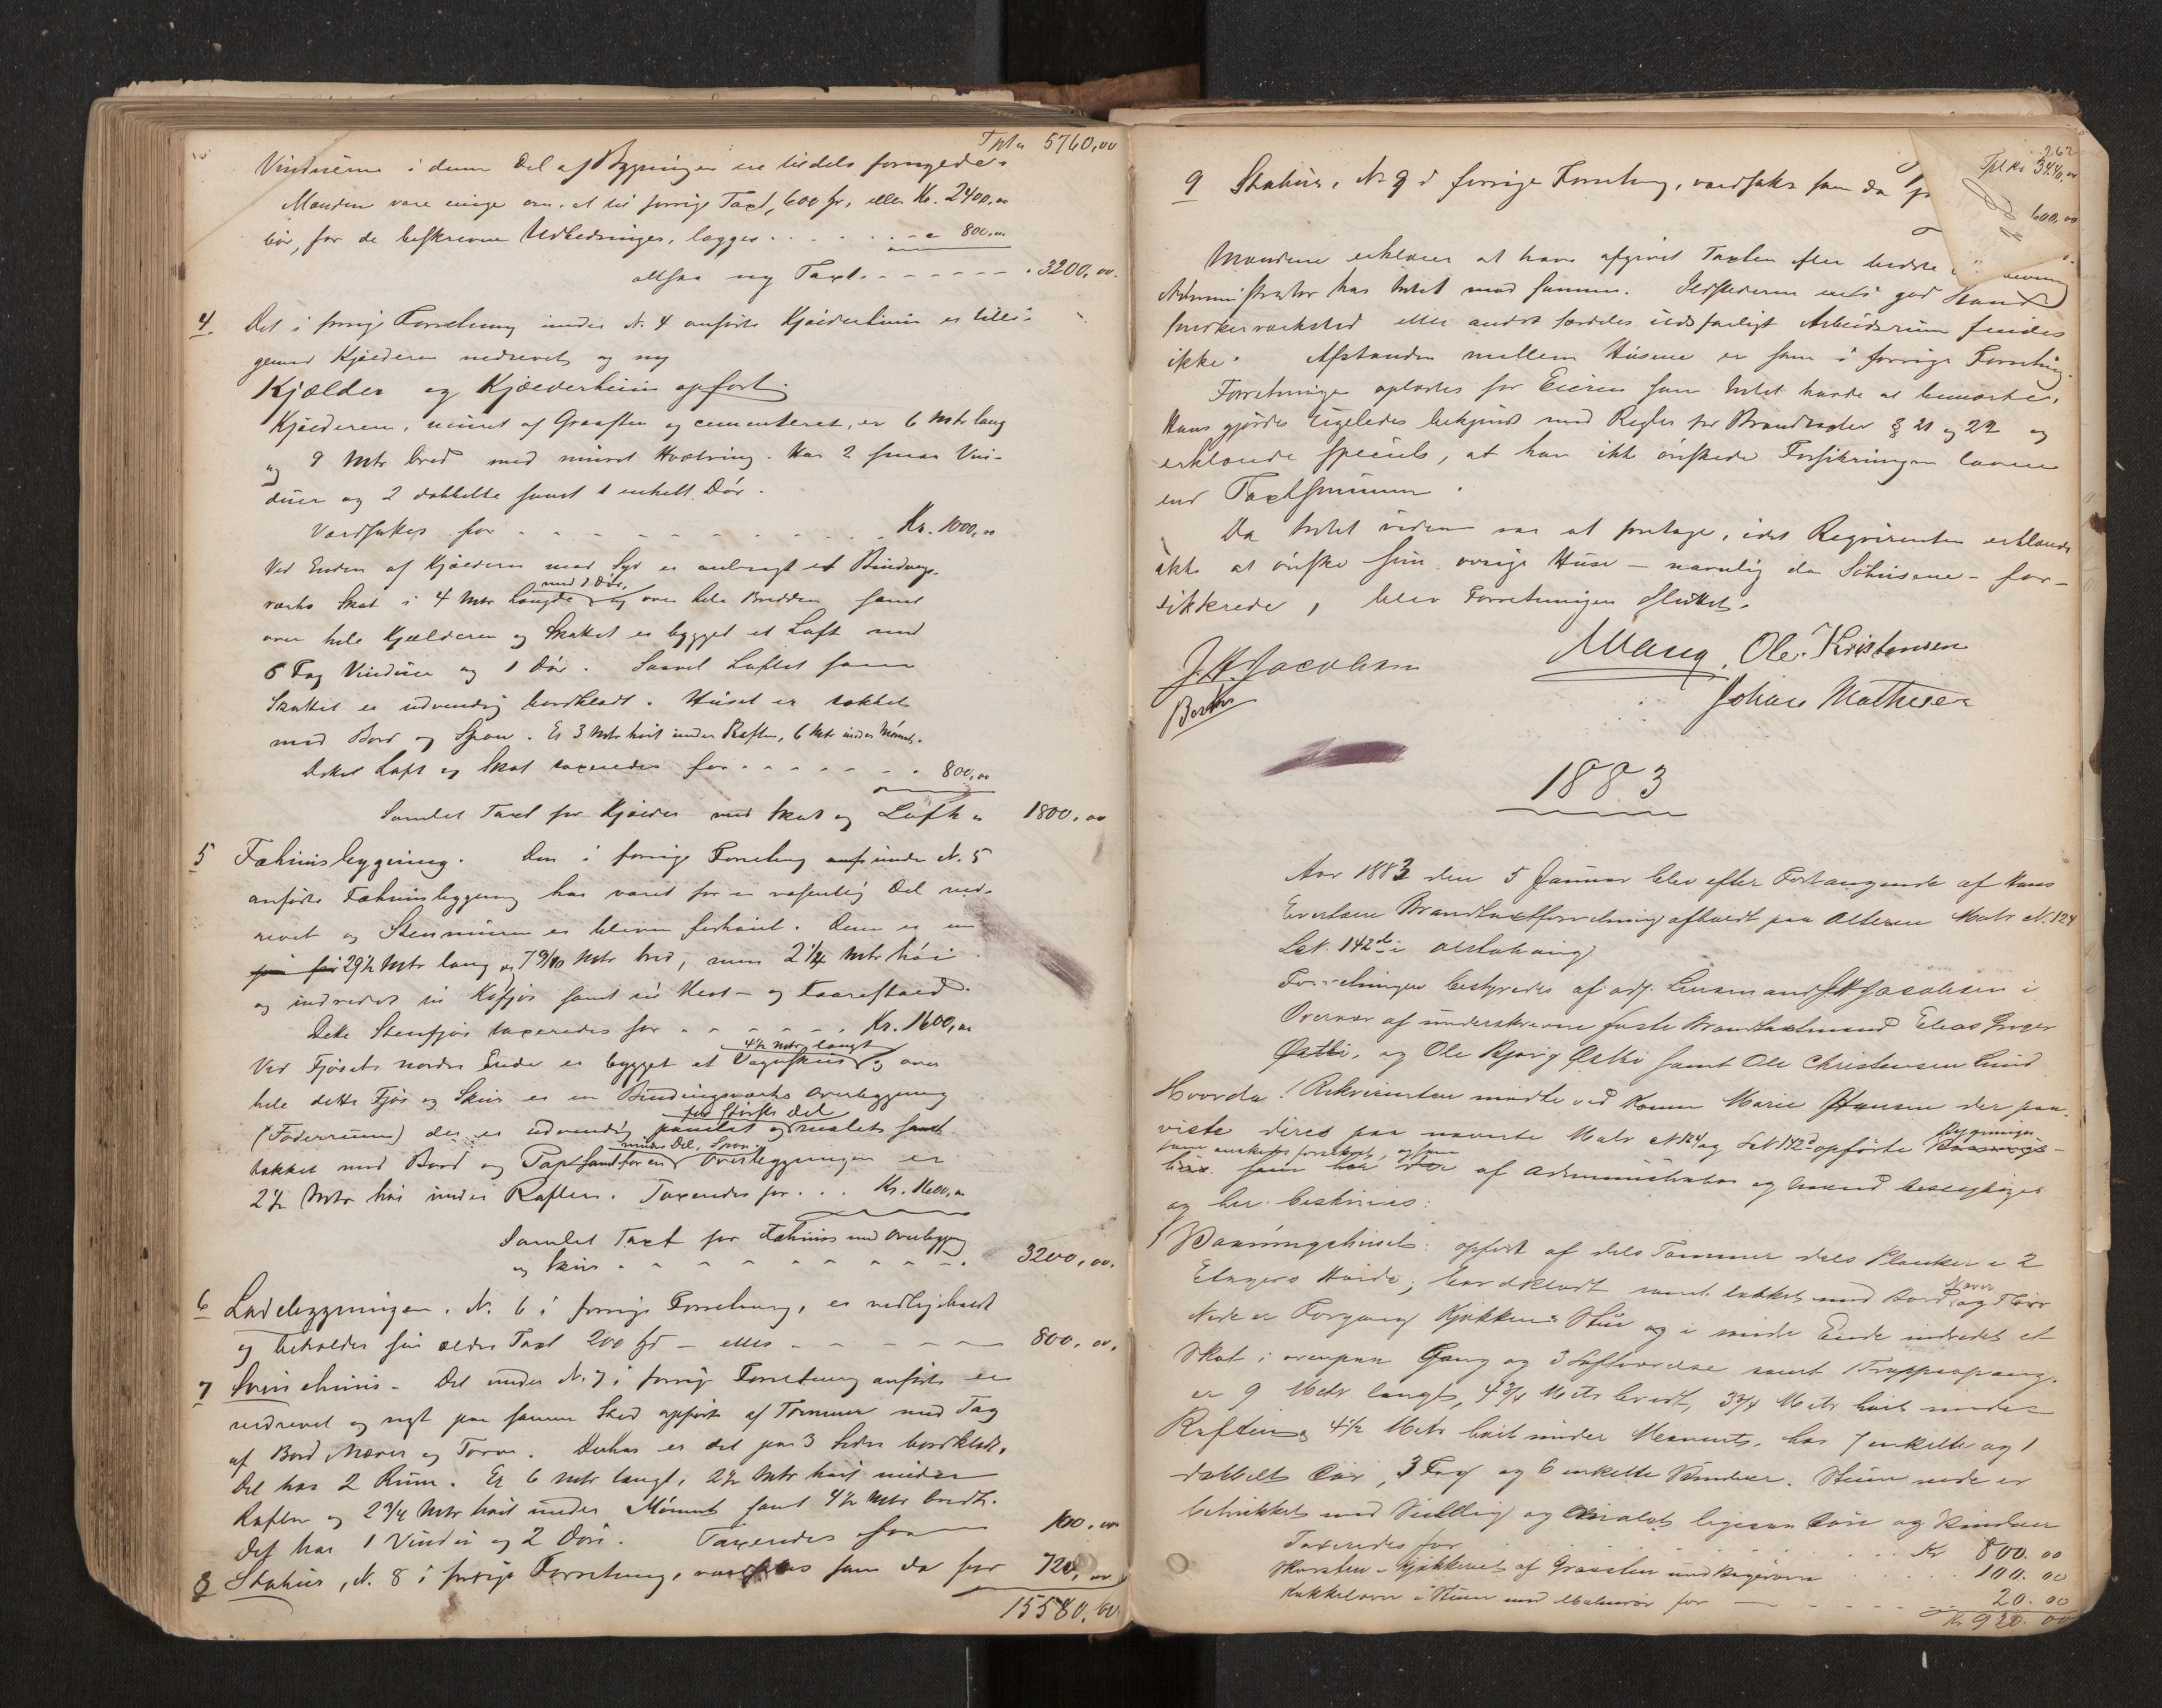 Tpt. 5760,00
Vinduerne i denne Del af Bygningen er tildels fornyede.
Mændene vare enige om, at til forrige Taxt, 600 Spd, eller Kr. 2400,00
bør, for de beskrevne Udbedringer, lægges - - - 800,00
altsaa ny Taxt - - - - - - 3200,00.
4. Det i forrige Forretning under N. 4 anførte Kjælderhuus er tilli-
gemed Kjælderen nedrevet og ny
Kjælder og Kjælderhuus opført.
Kjælderen, muret af Graasten og cementeret, er 6 Mtr lang
og 9 Mtr bred med muret Hvælving. Har 2 smaa Vin-
duer og 2 dobbelte samt 1 enkelt Dør.
Værdsættes for - - - - - - Kr. 1000,00
Ved Enden af Kjælderen mod Syd er anbragt et Bindings-
med 1 Dør,
værks Skot i 4 Mtr Længde og over hele Bredden samt
over hele Kjælderen og Skottet er bygget et Loft med
6 Fag Vinduer og 1 Dør. Saavel Loftet som
Skottet er udvendig bordklædt. Huset er takket
med Bord og Spon. Er 3 Mtr høit under Raften, 6 Mtr under Mønet.
Dette Loft og Skot taxeredes for - - - - - 800,00
Samlet Taxt for Kjælder med Skot og Loft 1800,00
5 Fæhuusbygning. Den i forrige Forretning under N. 5
anførte Fæhuusbygning har været for en væsentlig Del ned-
revet og Stenmuren er bleven forhøiet. Denne er nu
29½ Mtr lang og 7 9/10 Mtr bred, samt 2¼ Mtr høi
og indredet til Kofjøs samt til Hest- og Faarestald.
Dette Stenfjøs taxeredes for - - - - - Kr. 1600,00
4½ Mtr langt
Ved Fjøsets nordre Ende er bygget et Vognskuur og over
hele dette Fjøs og Skuur er en Bindingsværks Overbygning
for største Del
(Foderrum) der er udvendig panelet og malet samt
mindre Del, Spon.
takket med Bord og Pap samt for en Overbygningen er
2½ Mtr høi under Raften. Taxeredes for . . . Kr. 1600,00
Samlet Taxt for Fæhuus med Overbygg
og Skuur - - - - - - - - 3200,00.
6 Ladebygningen. N. 6 i forrige Forretning, er vedligeholdt
og beholdes sin ældre Taxt 200 Spd - eller - - - - - 800,00.
7 Svinehuus - Det under N. 7 i forrige Forretning anførte er
nedrevet og nyt paa samme Sted opført af Tømmer med Tag
af Bord Næver og Torv. Derhos er det paa 3 Sider bordklædt.
Det har 2 Rum. Er 6 Mtr langt, 2½ Mtr høit under
Raften og 2¾ Mtr høit under Mønet samt 4½ Mtr bredt.
Det har 1 Vindu og 2 Døre. Taxeredes for 100,00
8 Stabuur, N. 8 i forrige Forretning, værdsættes som da for 720,00
15580,00
262
Tpt Kr 3440,00
600,00
9 Stabuur, N. 9 i forrige Forretning, værdsattes som da
Mændene erklærer at have afgivet Taxten efter bedste
Administrator har Intet mod samme. Ildstederne ere i god Stand
Snedkerværksted eller andet særdeles ildsfarligt Arbeidsrum findes
ikke. Afstanden mellem Husene er som i forrige Forretning.
Forretningen oplæstes for Eieren som Intet havde at bemærke.
Han gjordes ligeledes bekjendt med Regler for Brandtaxter § 21 og 22 og
erklærede specielt, at han ikke ønskede Forsikringen lavere
end Taxtsummen.
Da Intet videre var at foretage, idet Reqvirenten erklærede
ikke at ønske sine øvrige Huse - navnlig da Søhusene - for-
sikkrede, blev Forretningen sluttet.
J. H. Jacobsen
Mang. Ole Kristensen
Johan Mathisen
1883
Aar 1883 den 5 Januar blev efter Forlangende af Hans
Evertsen Brandtaxtforretning afholdt paa Alteren Matr N. 124
Løb. 142d i Alstahaug
Forretningen bestyredes af adj. Lensmand JH Jacobsen i
Overvær af underskrevne faste Brandtaxtmænd Elias Greger
Østbi, og Ole Bjørg Østbi samt Ole Christensen Lund
Hvorda! Rekvirenten mødte ved Konen Marie Hansen der paa-
viste deres paa nævnte Matr N 124 og Løb N 142d opførte Bygninger
som ønskes forsikret, og som af Administrator og Mænd besigtiges
og her beskrives:
1 Vaaningshuset: opført af dels Tømmer dels Planker i 2
Etagers Høide, bordklædt samt takket med Bord, Næver og Torv
Nede er Forgang Kjøkken Stue og i nordre Ende indredet et
Skot; ovenpaa Gang og 3 Loftværelse samt 1 Trappeopgang.
er 9 Metr langt, 4¾ Metr bredt, 3¾ Metr høit under
Raften, 4½ Metr høit under Mønnet, har 7 enkelte og 1
dobbelt Dør, 3 Fag og 6 enkelte Vinduer. Stuen nede er
betrækket med og malet ligesaa Døre og Vinduer
Taxeredes for . . . . . . Kr 800.00
Skorsten i Kjøkkenet af Graasten med Bagerovn . . . . 100.00
Kakkelovn i Stuen med Malmrør for - - - - 20.00
Kr 920.00